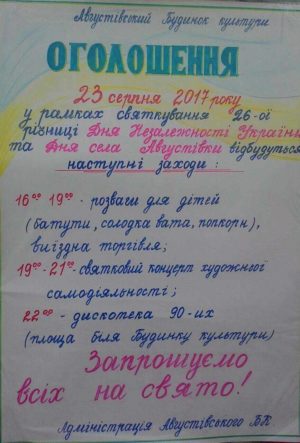 Августівський Будинок культури
ОГОЛОШЕННЯ
23 серпня 2017 року
у рамках святкування 26-ої
річниці Дня Незалежності України
та Дня села Августівки відбудуться
наступні заходи:
16⁰⁰ 19⁰⁰ - розваги для дітей
(батути, солодка вата, попкорн),
виїздна торгівля;
19⁰⁰-21⁰⁰-святковий концерт художньої
самодіяльності;
22⁰⁰ - дискотека 90-их
(площа біля Будинку культури)
Запрошуємо
всіх на свято!
Адміністрація Августівського БК